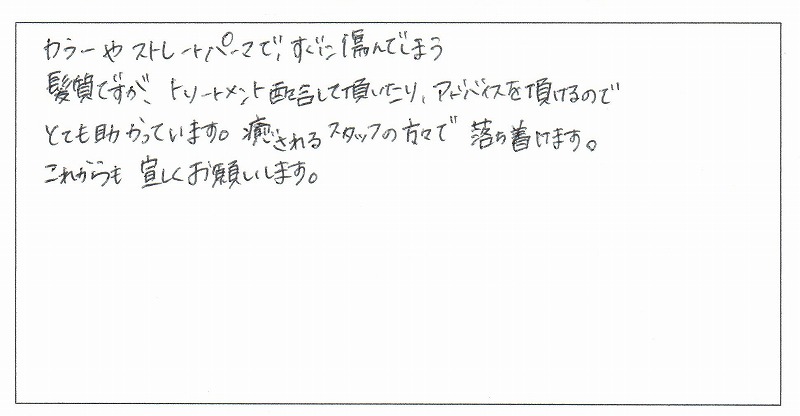 カラーやストレートパーマで、すぐに傷んでしまう
髪質ですが、トリートメント配合して頂いたり、アドバイスを頂けるので
とても助かっています。癒されるスタッフの方々で 落ち着けます。
これからも 宜しくお願いします。